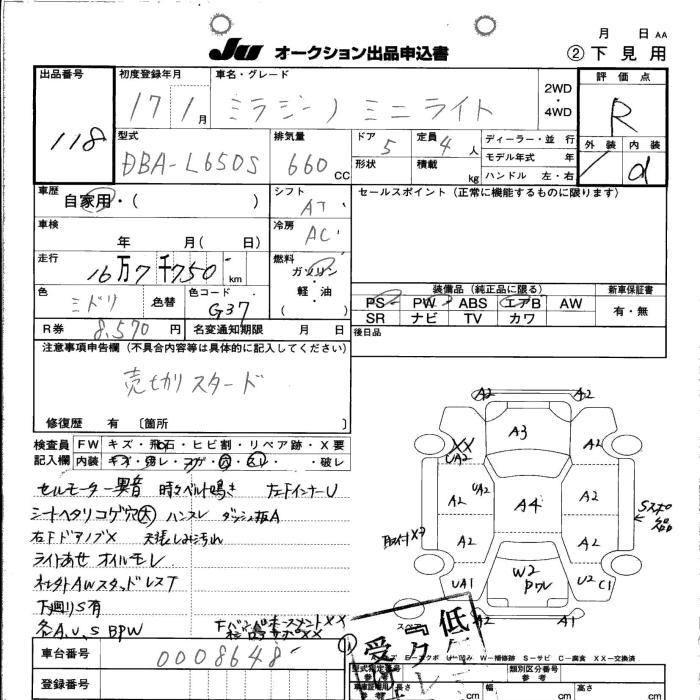 月 日 AA
JU オークション出品申込書 ②下見用
出品番号 118
初度登録年月 17 1月
車名・グレード ミラジーノ ミニライト
2WD・4WD
評価点 R
外装 内装 d
型式 DBA-L650S
排気量 660 CC
ドア 5
形状
定員 4人
積載 kg
ディーラー・並 行
モデル年式 年
ハンドル 左・右
車歴 自家用・( )
シフト AT
セールスポイント(正常に機能するものに限ります)
車検 年 月( 日)
冷房 AC
走行 16万7千750 km
燃料 ガソリン・軽・油 ( )
色 ミドリ 色替
色コード G37
装備品(純正品に限る)
PS PW ABS エアB AW
SR ナビ TV カワ
新車保証書 有・無
R券 8,570 円 名変通知期限 月 日
後日品
注意事項申告欄(不具合内容等は具体的に記入してください)
売切りスタード
修復歴 有 〔箇所 〕
検査員記入欄 FW キズ・飛石・ヒビ割・リペア跡・X要
内装 キズ・汚レ・コゲ・穴・スレ・破レ
セルモーター異音 時々ベルト鳴き 左FインナーU
シートヘタリコゲ穴大 ハンスレ ダッシュ板A
右FドアノブX 天張しみ汚れ
ライトあせ オイルモレ
社外AWスタッドレスT
下廻りS有
各A,U,S BPW
車台番号 0008648
登録番号
A2 A2
A3
XX UA2
A2
A2 UA2 A4 A2
Sスポ
取付XX
A2 A2
UA1 W2 Pワレ U2 C1
A2 A1
低
受
U-凹み W-補修跡 S-サビ C-腐食 XX-交換済
型式指定番号 類別区分番号
参考 長さ cm cm cm